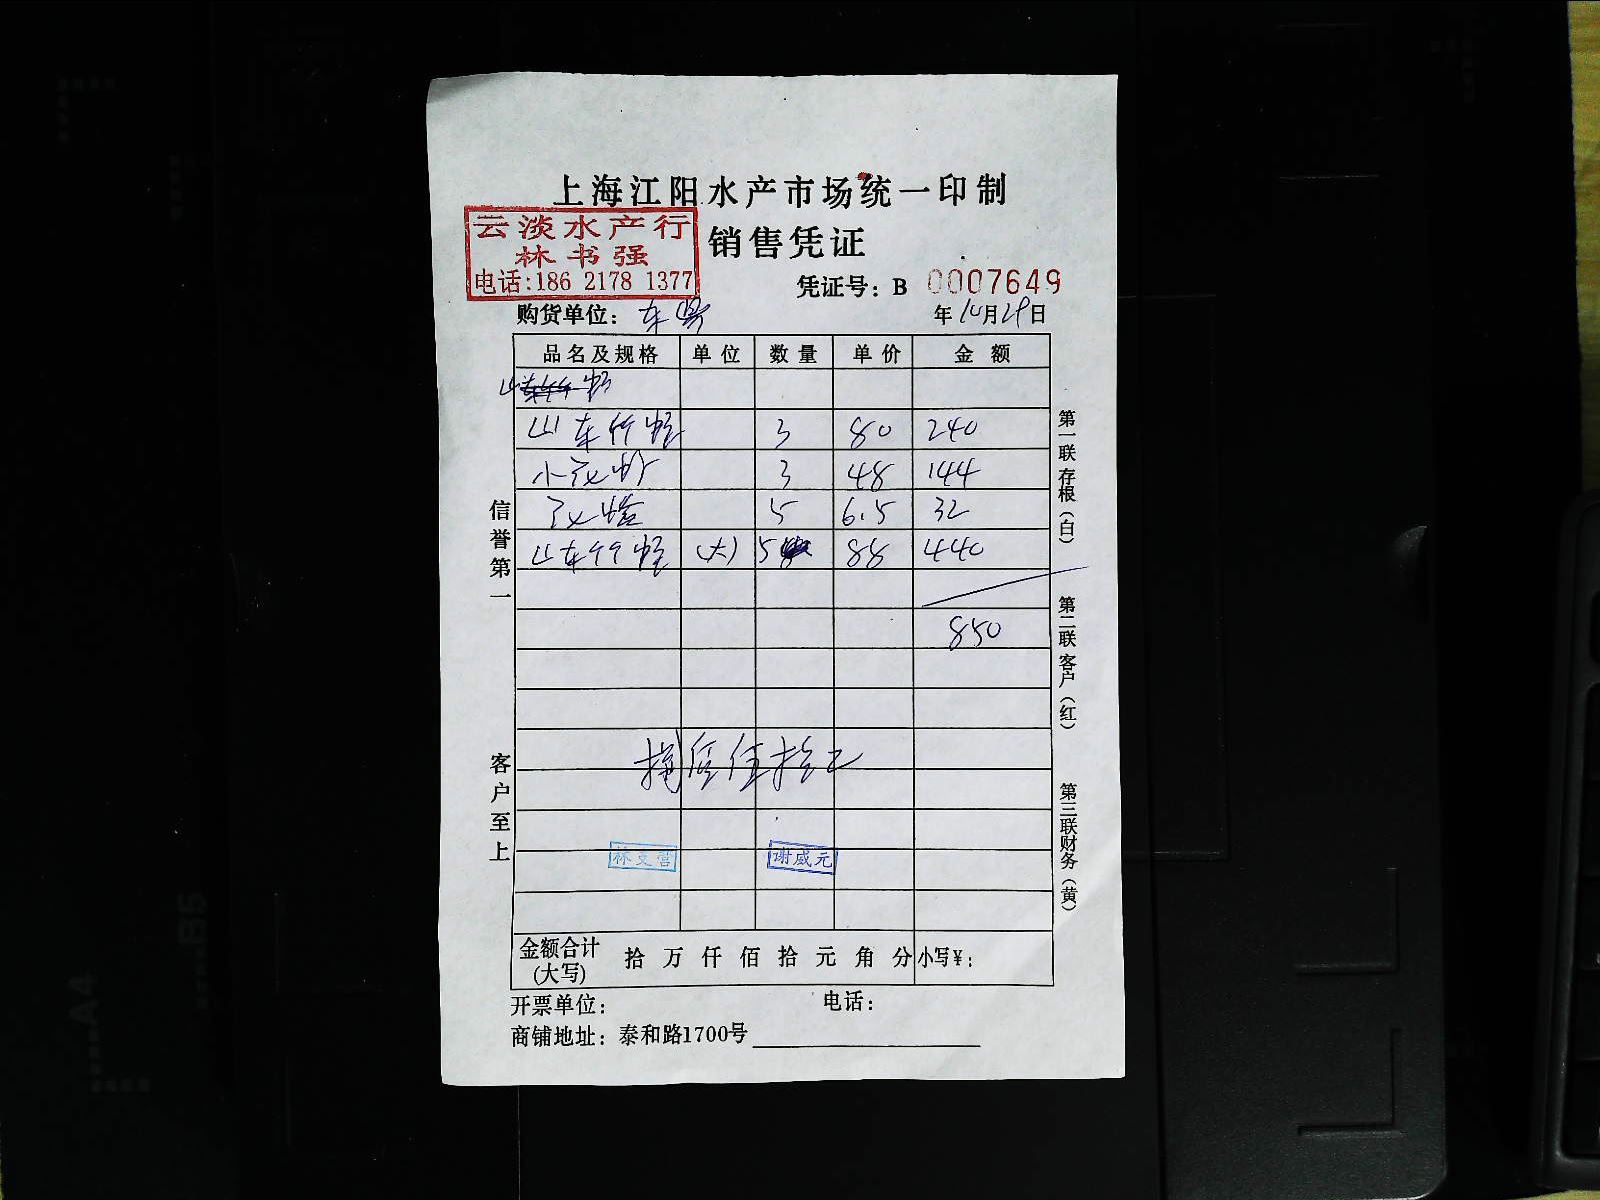 上海江阳水产市场统一印制
云淡水产行
林书强
电话:186 2178 1377
销售凭证
凭证号：B 0007649
购货单位：
年10月29日
品名及规格 单位 数量 单价 金额
山东竹蛏 3 80 240
3 48 144
5 6.5 32
山东竹蛏 (大) 5 88 440
850
捌佰伍拾元
林文营
谢威元
金额合计(大写) 拾 万 仟 佰 拾 元 角 分 小写¥：
开票单位： 电话：
商铺地址：泰和路1700号
信誉第一
客户至上
第一联 存根（白）
第二联 客户（红）
第三联 财务（黄）
A4
B5